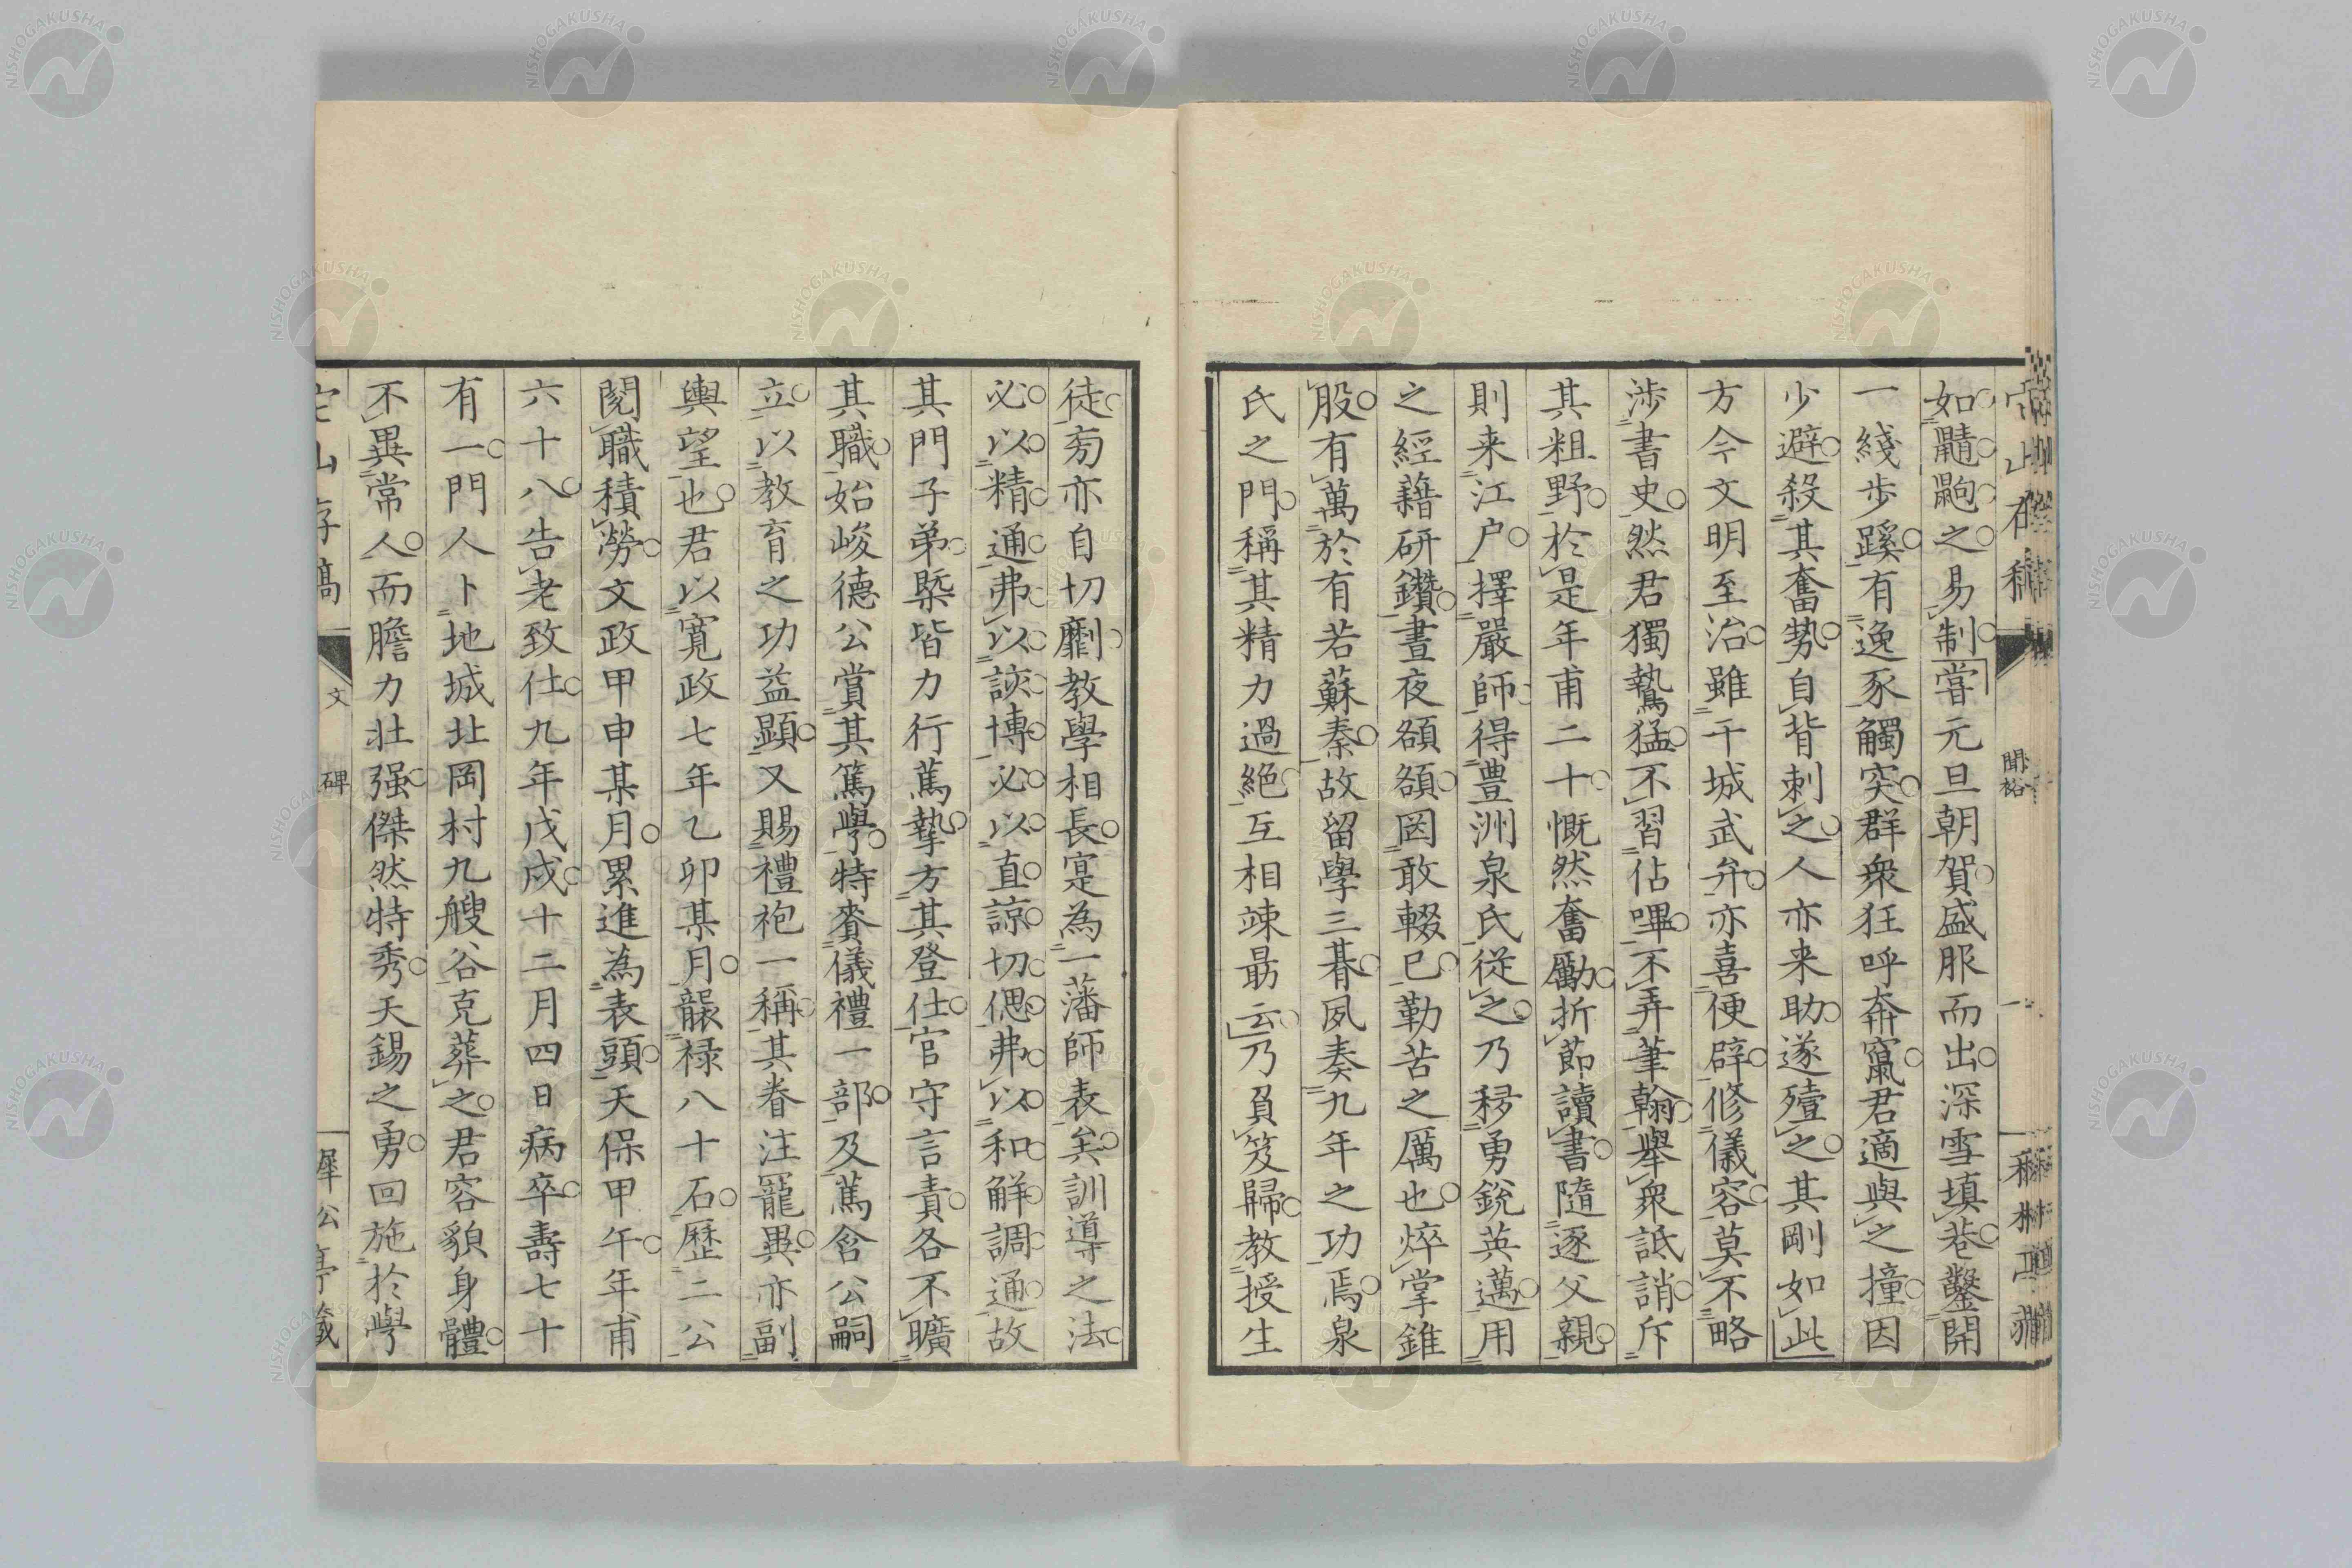 如鼷鼩之易制嘗元旦朝賀盛服而出深雪填巷鑿開
一綫步蹊有逸豕觸突群衆狂呼奔竄君適與之撞因
少避殺其奮勢自背刺之人亦来助遂殪之其剛如此
方今文明至治雖干城武弁亦喜便辟修儀容莫不略
渉書史然君獨鷙猛不習佔嗶不弄筆翰舉衆詆誚斥
其粗野於是年甫二十慨然奮勵折節讀書隨逐父親
則来江户擇嚴師得豊洲泉氏從之乃移勇銳英邁用
之經藉研鑽晝夜額額罔敢輟已勤苦之厲也焠掌錐
股有萬於有若蘇秦故留學三朞夙奏九年之功焉泉
氏之門稱其精力過絶互相竦最云乃負笈歸教授生
徒旁亦自切劘教學相長寔為一藩師表矣訓導之法
必以精通弗以該博必以直諒切偲弗以和解調通故
其門子弟槩皆力行蔫摯方其登仕官守言責各不曠
其職始峻德公賞其篤學特賚儀禮一部及蔫含公嗣
立以教育之功益顯又賜禮袍一稱其眷注寵異亦副
輿望也君以寛政七年乙卯某月襲禄八十石歴二公
閲職積勞文政甲申某月累進為表頭天保甲午年甫
六十八告老致仕九年戊戌十二月四日病卒壽七十
有一門人卜地城北岡村九艘谷克葬之君容貌身體
不異常人而膽力壮强傑然特秀天錫之勇回施於學
文
碑